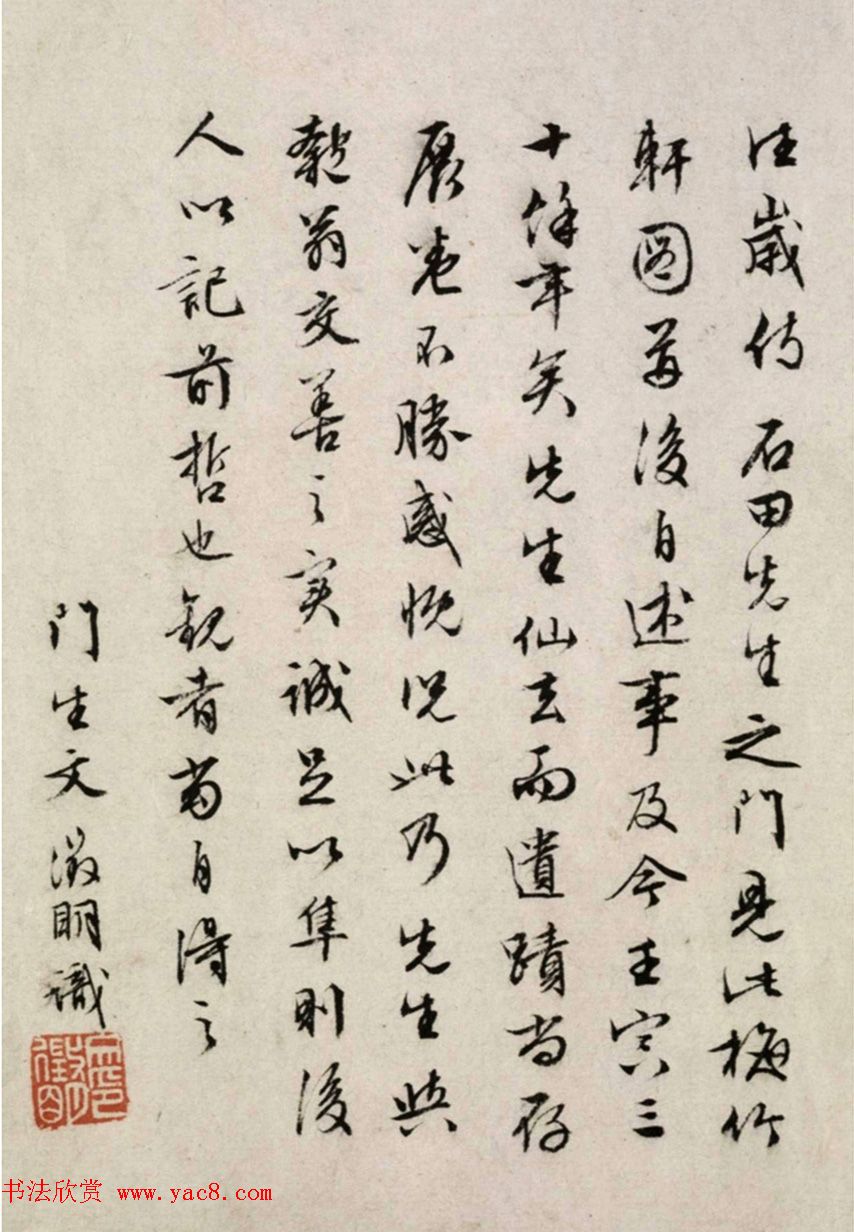 往歲侍 石田先生之門見此梅竹
軒圖後自述事及今壬寅三
十餘年矣先生仙去而遺蹟尚存
展卷不勝感慨況此乃先生與
匏翁交善之實誠足以隼則後
人以記前哲也觀者當自得之
門生文徵明識
书法欣赏 www.yac8.com